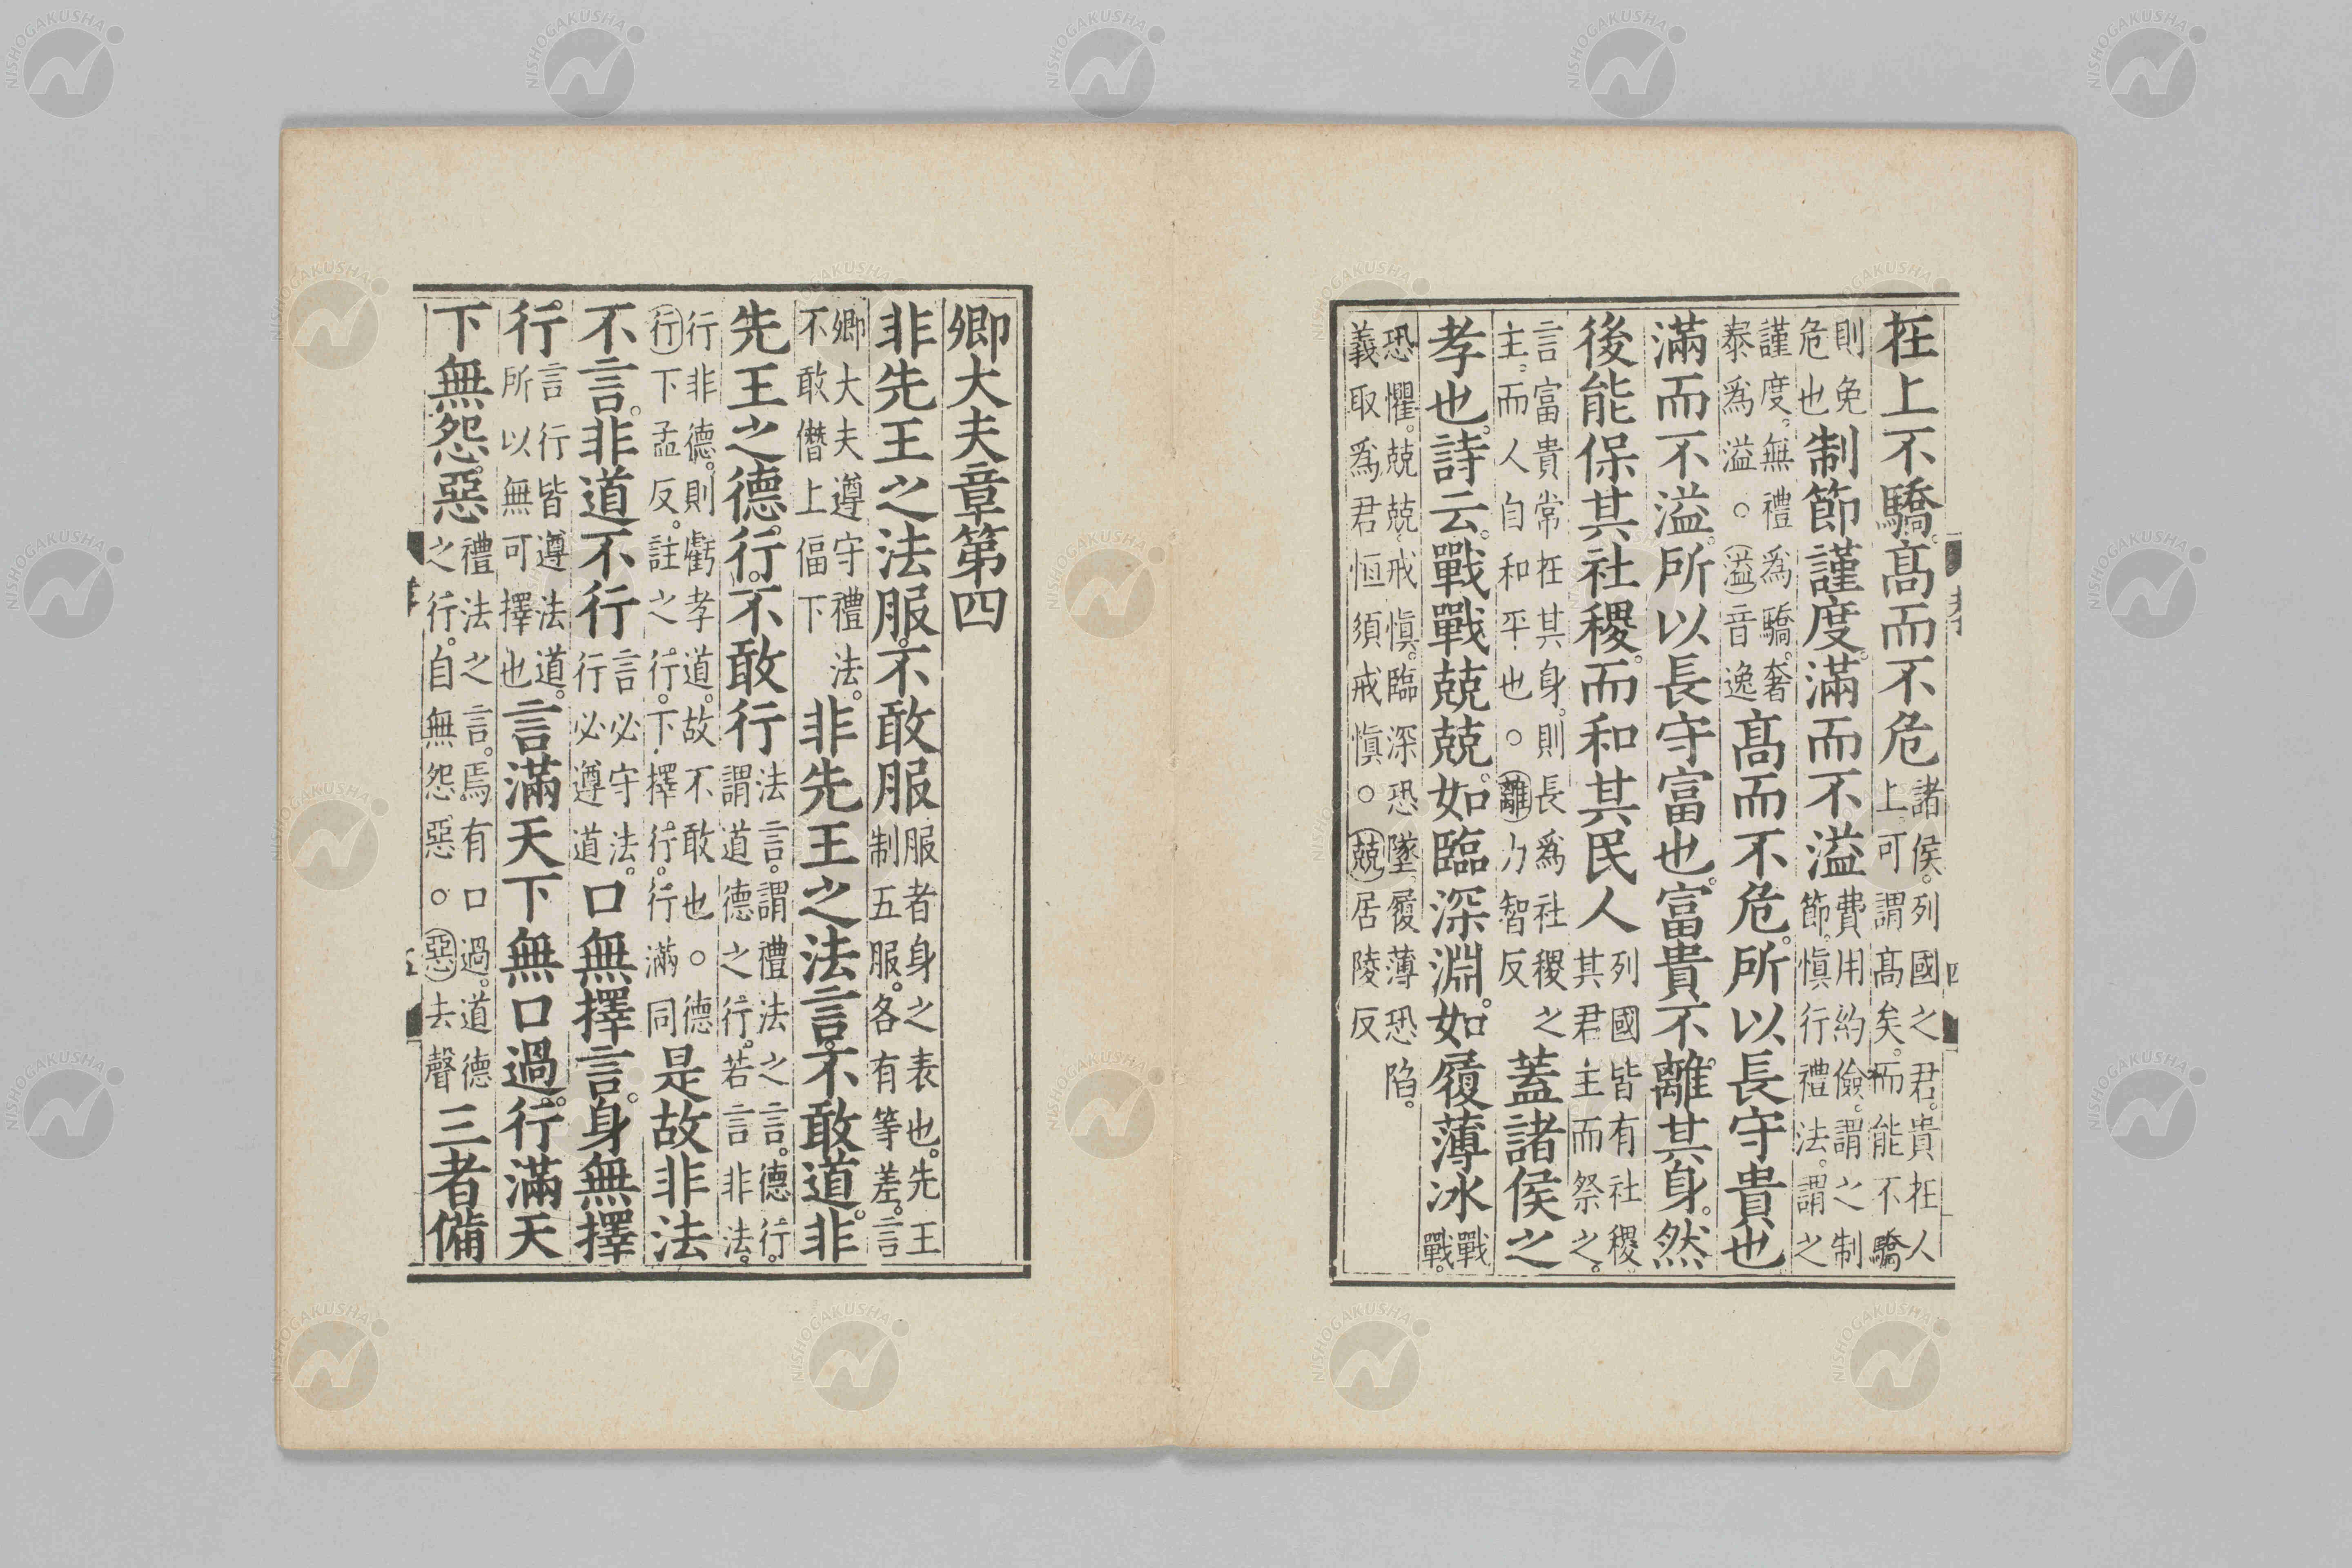 在上不驕。高而不危諸侯。列國之君。貴在人上。可謂高矣。而能不驕
則免危也制節謹度。滿而不溢費用約儉。謂之制節。慎行禮法。謂之
謹度。無禮爲驕。奢泰爲溢。○溢音逸高而不危。所以長守貴也
滿而不溢。所以長守富也。富貴不離其身。然
後能保其社稷。而和其民人列國皆有社稷。其君主而祭之。
言富貴常在其身。則長爲社稷之主。而人自和平也。○離力智反蓋諸侯之
孝也。詩云。戰戰兢兢。如臨深淵。如履薄冰戰戰。
恐懼。兢兢。戒慎。臨深恐墜。履薄恐陷。義取爲君恒須戒慎。○兢居陵反
四
卿大夫章第四
非先王之法服。不敢服服者身之表也。先王制五服。各有等差。言
卿大夫遵守禮法。不敢僭上偪下非先王之法言。不敢道。非
先王之德行。不敢行法言。謂禮法之言。德行。謂道德之行。若言非法。
行非德。則虧孝道。故不敢也。○德行下孟反。註之行。下擇行。行滿同是故非法
不言。非道不行言必守法。行必遵道口無擇言。身無擇
行。言行皆遵法道。所以無可擇也言滿天下無口過。行滿天
下無怨惡禮法之言。焉有口過。道德之行。自無怨惡。○惡去聲三者備
NISHOGAKUSHA